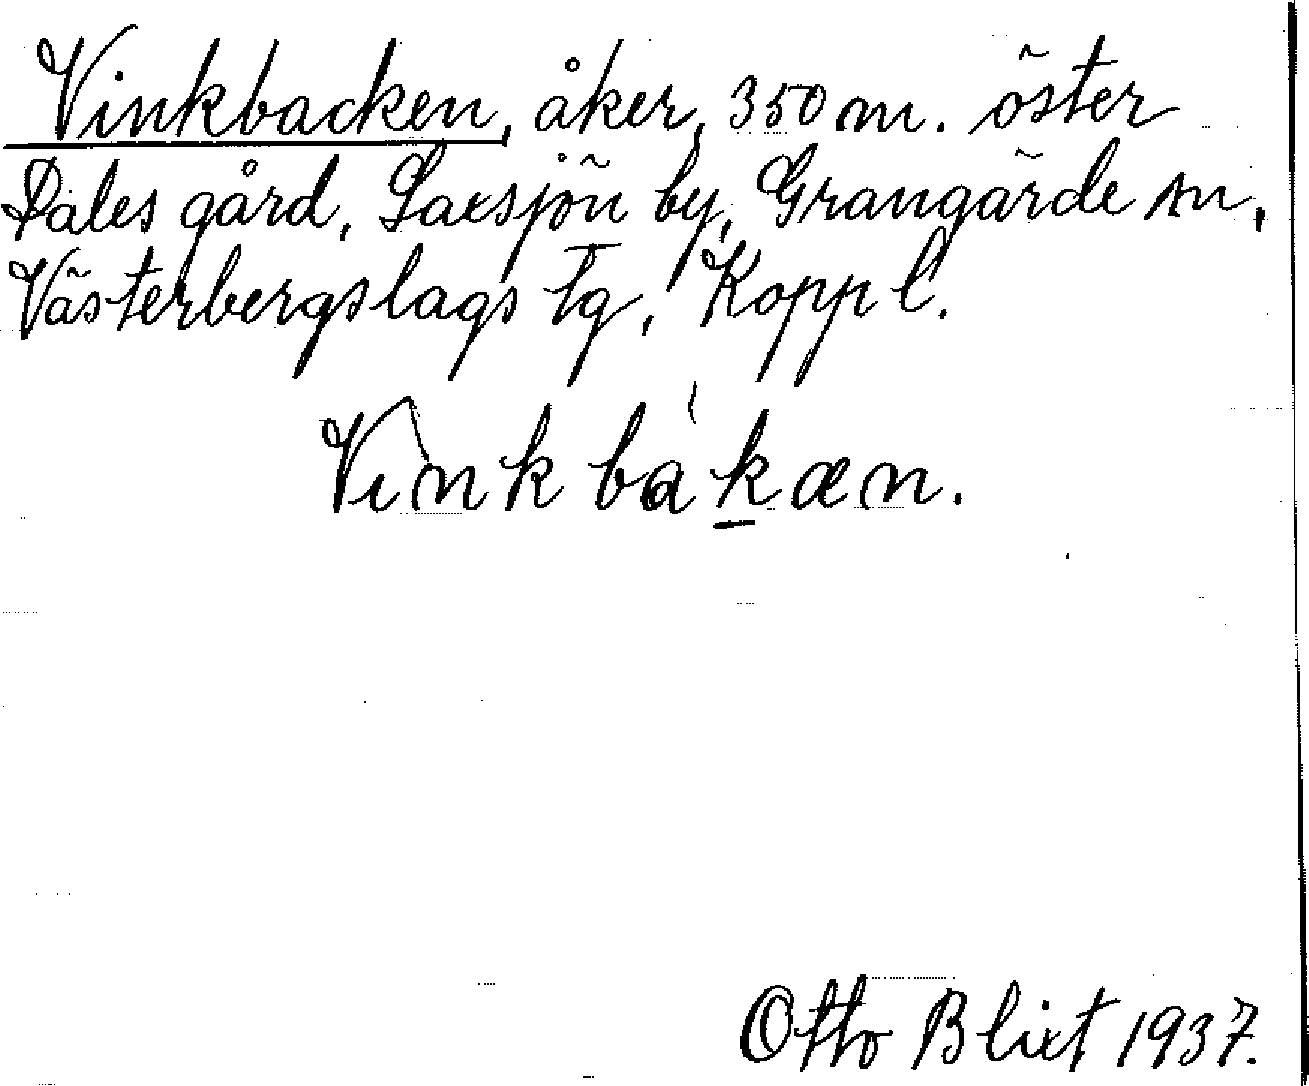 Vinkbacken, åker, 350 m. öster
Dales gård, Laxsjön by, Grangärde sn,
Västerbergslags tg, Kopp l.
Vinkbakæn.
Otto Blixt 1937.